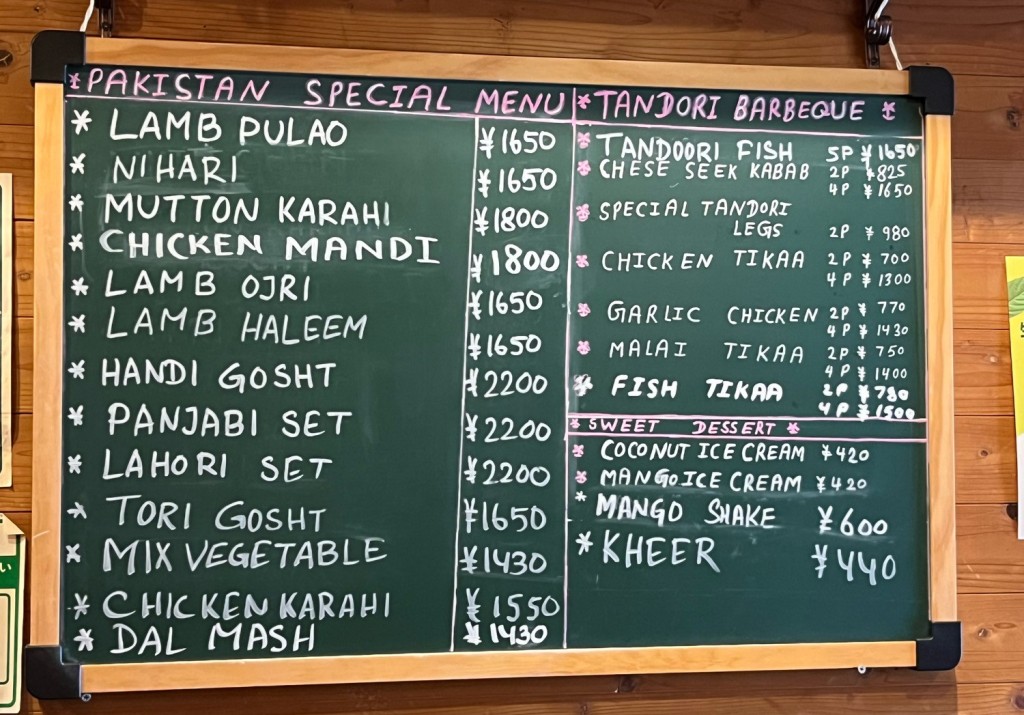 * PAKISTAN SPECIAL MENU
* LAMB PULAO ¥1650
* NIHARI ¥1650
* MUTTON KARAHI ¥1800
* CHICKEN MANDI ¥1800
* LAMB OJRI ¥1650
* LAMB HALEEM ¥1650
* HANDI GOSHT ¥2200
* PANJABI SET ¥2200
* LAHORI SET ¥2200
* TORI GOSHT ¥1650
* MIX VEGETABLE ¥1430
* CHICKEN KARAHI ¥1550
* DAL MASH ¥1430
* TANDORI BARBEQUE *
* TANDOORI FISH 5P ¥1650
* CHESE SEEK KABAB 2P ¥825
4P ¥1650
* SPECIAL TANDORI
LEGS 2P ¥980
* CHICKEN TIKAA 2P ¥700
4P ¥1300
* GARLIC CHICKEN 2P ¥770
4P ¥1430
* MALAI TIKAA 2P ¥750
4P ¥1400
* FISH TIKAA 2P ¥780
4P ¥1500
* SWEET DESSERT *
* COCONUT ICE CREAM ¥420
* MANGO ICE CREAM ¥420
* MANGO SHAKE ¥600
* KHEER ¥440
い